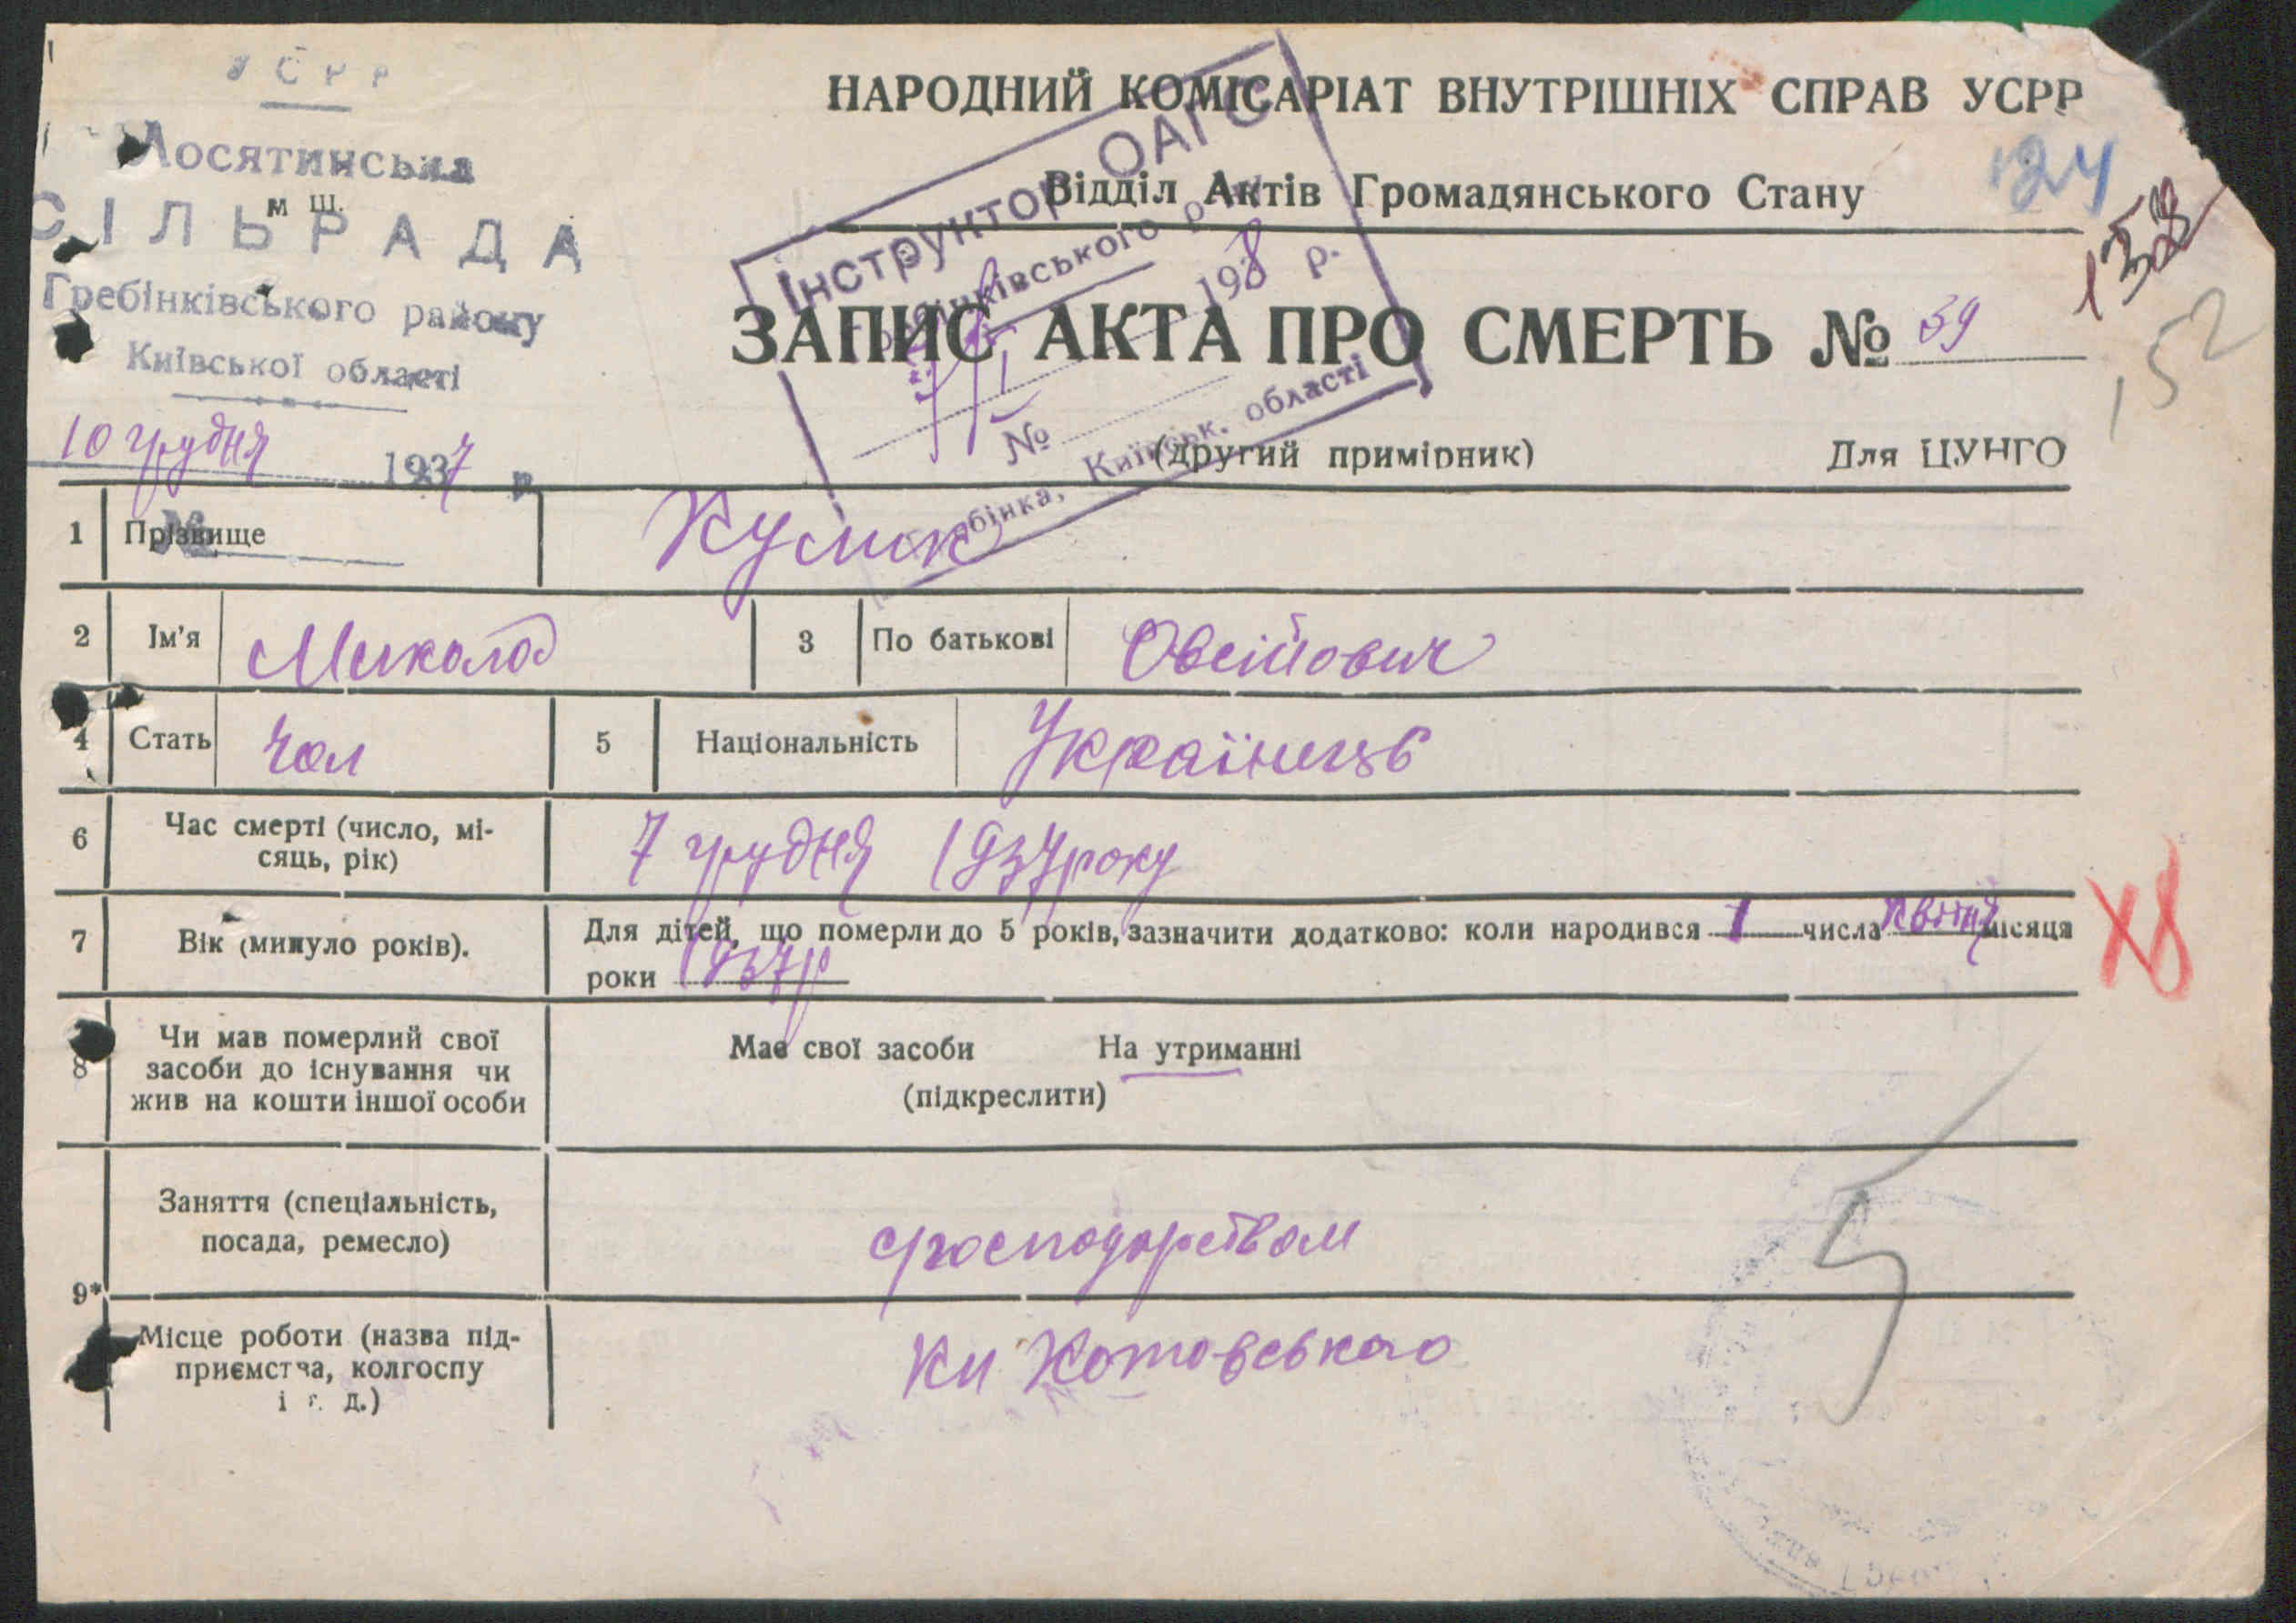 УСРР
Лосятинська
м. Ш.
СІЛЬРАДА
Гребінківського району
Київської області
10 грудня 1937 р
№
НАРОДНИЙ КОМІСАРІАТ ВНУТРІШНІХ СПРАВ УСРР
Відділ Актів Громадянського Стану
124
158
152
Інструктор ОАГС
Гребінківського р-ну
1938 р.
№
Гребінка, Київськ. області
ЗАПИС АКТА ПРО СМЕРТЬ № 59
(другий примірник) Для ЦУНГО
1 Прізвище Кулик
2 Ім'я Микола 3 По батькові Овсійович
4 Стать Чол 5 Національність Українець
6 Час смерті (число, мі-
сяць, рік) 7 грудня 1937 року
7 Вік (минуло років). Для дітей, що померли до 5 років, зазначити додатково: коли народився 1 числа квітня місяця
роки 1937 р
Х8
8 Чи мав померлий свої
засоби до існування чи
жив на кошти іншої особи
Має свої засоби На утриманні
(підкреслити)
9* Заняття (спеціальність,
посада, ремесло)
господарством
Місце роботи (назва під-
приємства, колгоспу
і т. д.)
Котовського
5